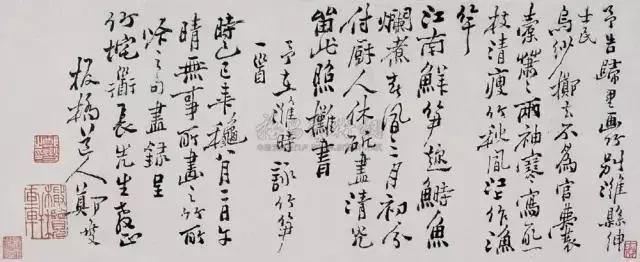 予告歸里畫竹別濰縣紳
士民
烏紗擲去不為官囊
橐蕭蕭兩袖寒寫取一
枝清瘦竹秋風江上作漁
竿
江南鮮笋趁鰣魚
爛煮春風三月初分
付廚人休斫盡清光
留此照攤書
予在濰時詠竹笋
一首
時乙巳年穐八月二日午
晴無事所畫之竹所
詠之句盡錄呈
竹坨衢長先生教正
板橋道人鄭燮